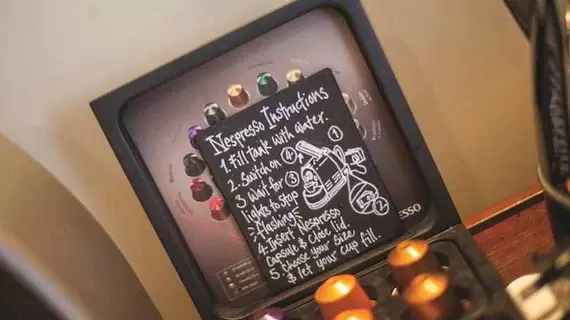 Nespresso Instructions
1. Fill tank with water.
2. Switch on
3 Wait for
lights to stop
-flashing-
4. Insert Nespresso
capsule & close lid.
5. Choose your size
& let your cup fill.
1
4
3
2
ESSO